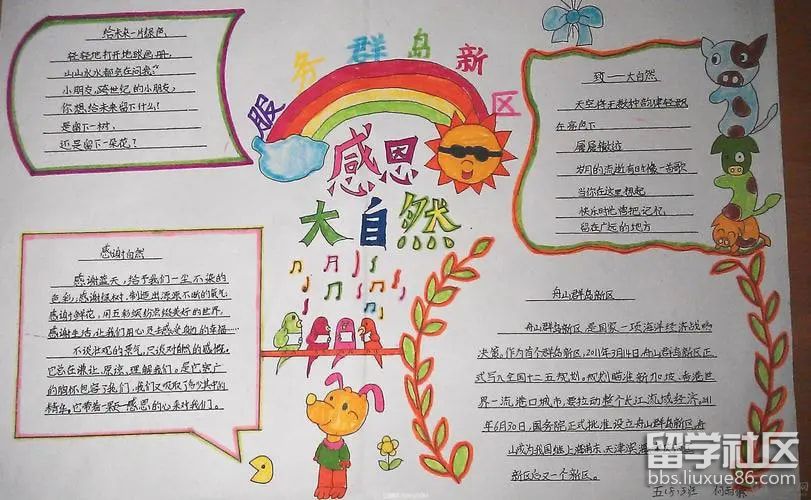 服务群岛新区
感恩
大自然
给未来一片绿色
轻轻地打开地球画册,
山山水水都会在问我?
小朋友,跨世纪的小朋友,
你想给未来留下什么?
是留下一树,
还是留下一朵花?
致——大自然
天空将无数种韵律轻融
在亮色下
层层撤边
岁月的流逝有时像一首歌
当你在这里想起
快乐时光请把记忆
留在广远的地方
感谢自然
感谢蓝天,给予我们一尘不染的
色彩;感谢绿树,制造出源源不断的氧气;
感谢鲜花,用五彩缤纷点缀美好的世界,
感谢生活,让我们用心灵去感受身边的幸福……
不谈壮观的景气,只谈对自然的感慨。
它总在谦让、原谅、理解我们。是它宽广
的胸怀包容了我们,我们又吸取了它
精华。它带着一颗感恩的心来对我们。
舟山群岛新区
舟山群岛新区,是国家一项海洋经济战略
决策。作为首个群岛新区,2011年3月14日,舟山群岛新区正
式写入全国十二五规划。规划瞄准新加坡、香港世
界一流港口城市,要拉动整个长江流域经济。2011
年6月30日,国务院正式批准设立舟山群岛新区,舟
山成为我国继上海浦东、天津滨海
新区后又一个新区。
五(3)班 何
留学社区
bbs.liuxue86.com